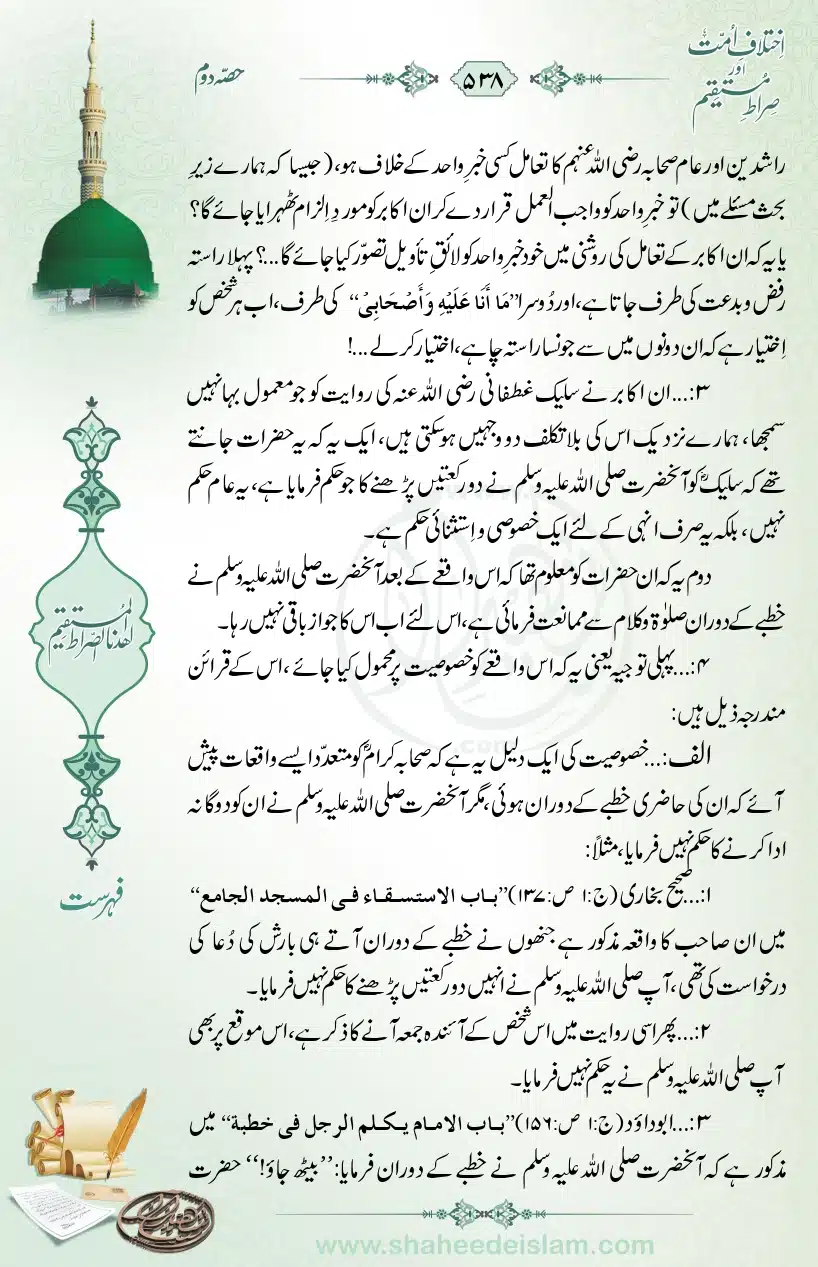 اِختلافِ اُمّت
اور
صراطِ مُستقیم
۵۳۸
حصّہ دوم
راشدین اور عام صحابہ رضی اللہ عنہم کا تعامل کسی خبرِ واحد کے خلاف ہو، (جیسا کہ ہمارے زیرِ
بحث مسئلے میں) تو خبرِ واحد کو واجب العمل قرار دے کر ان اکابر کو موردِ اِلزام ٹھہرایا جائے گا؟
یا یہ کہ ان اکابر کے تعامل کی روشنی میں خود خبرِ واحد کو لائقِ تأویل تصوّر کیا جائے گا...؟ پہلا راستہ
رفض و بدعت کی طرف جاتا ہے، اور دُوسرا ”مَا أَنَا عَلَيْهِ وَأَصْحَابِىْ“ کی طرف، اب ہر شخص کو
اِختیار ہے کہ ان دونوں میں سے جونسا راستہ چاہے، اختیار کرلے...!
۳:... ان اکابر نے سلیک غطفانی رضی اللہ عنہ کی روایت کو جو معمول بہا نہیں
سمجھا، ہمارے نزدیک اس کی بلاتکلف دو وجہیں ہوسکتی ہیں، ایک یہ کہ یہ حضرات جانتے
تھے کہ سلیکؓ کو آنحضرت صلی اللہ علیہ وسلم نے دو رکعتیں پڑھنے کا جو حکم فرمایا ہے، یہ عام حکم
نہیں، بلکہ یہ صرف انہی کے لئے ایک خصوصی و اِستثنائی حکم ہے۔
دوم یہ کہ ان حضرات کو معلوم تھا کہ اس واقعے کے بعد آنحضرت صلی اللہ علیہ وسلم نے
خطبے کے دوران صلوٰۃ و کلام سے ممانعت فرمائی ہے، اس لئے اب اس کا جواز باقی نہیں رہا۔
۴:... پہلی توجیہ یعنی یہ کہ اس واقعے کو خصوصیت پر محمول کیا جائے، اس کے قرائن
مندرجہ ذیل ہیں:
الف:... خصوصیت کی ایک دلیل یہ ہے کہ صحابہ کرامؓ کو متعدّد ایسے واقعات پیش
آئے کہ ان کی حاضری خطبے کے دوران ہوئی، مگر آنحضرت صلی اللہ علیہ وسلم نے ان کو دوگانہ
ادا کرنے کا حکم نہیں فرمایا، مثلاً:
۱:... صحیح بخاری (ج:۱ ص:۱۳۷) ”باب الاستسقاء فى المسجد الجامع“
میں ان صاحب کا واقعہ مذکور ہے جنھوں نے خطبے کے دوران آتے ہی بارش کی دُعا کی
درخواست کی تھی، آپ صلی اللہ علیہ وسلم نے انہیں دو رکعتیں پڑھنے کا حکم نہیں فرمایا۔
۲:... پھر اسی روایت میں اس شخص کے آئندہ جمعہ آنے کا ذکر ہے، اس موقع پر بھی
آپ صلی اللہ علیہ وسلم نے یہ حکم نہیں فرمایا۔
۳:... ابوداؤد (ج:۱ ص:۱۵۶) ”باب الامام يكلم الرجل فى خطبة“ میں
مذکور ہے کہ آنحضرت صلی اللہ علیہ وسلم نے خطبے کے دوران فرمایا: ”بیٹھ جاؤ!“ حضرت
اهدنا الصراط المستقیم
فہرست
www.shaheedeislam.com